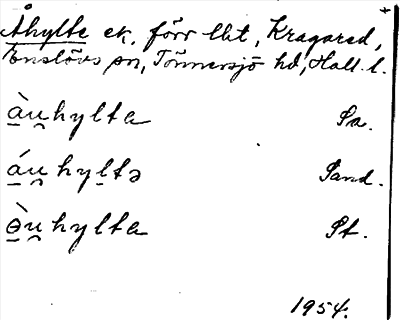 Åhylte ek. förr lht, Kragared,
Enslövs sn, Tönnersjö hd, Hall. l.
àu̯hylta Sa.
áu̯hyltə Sand.
ə̀u̯hylta St.
1954.